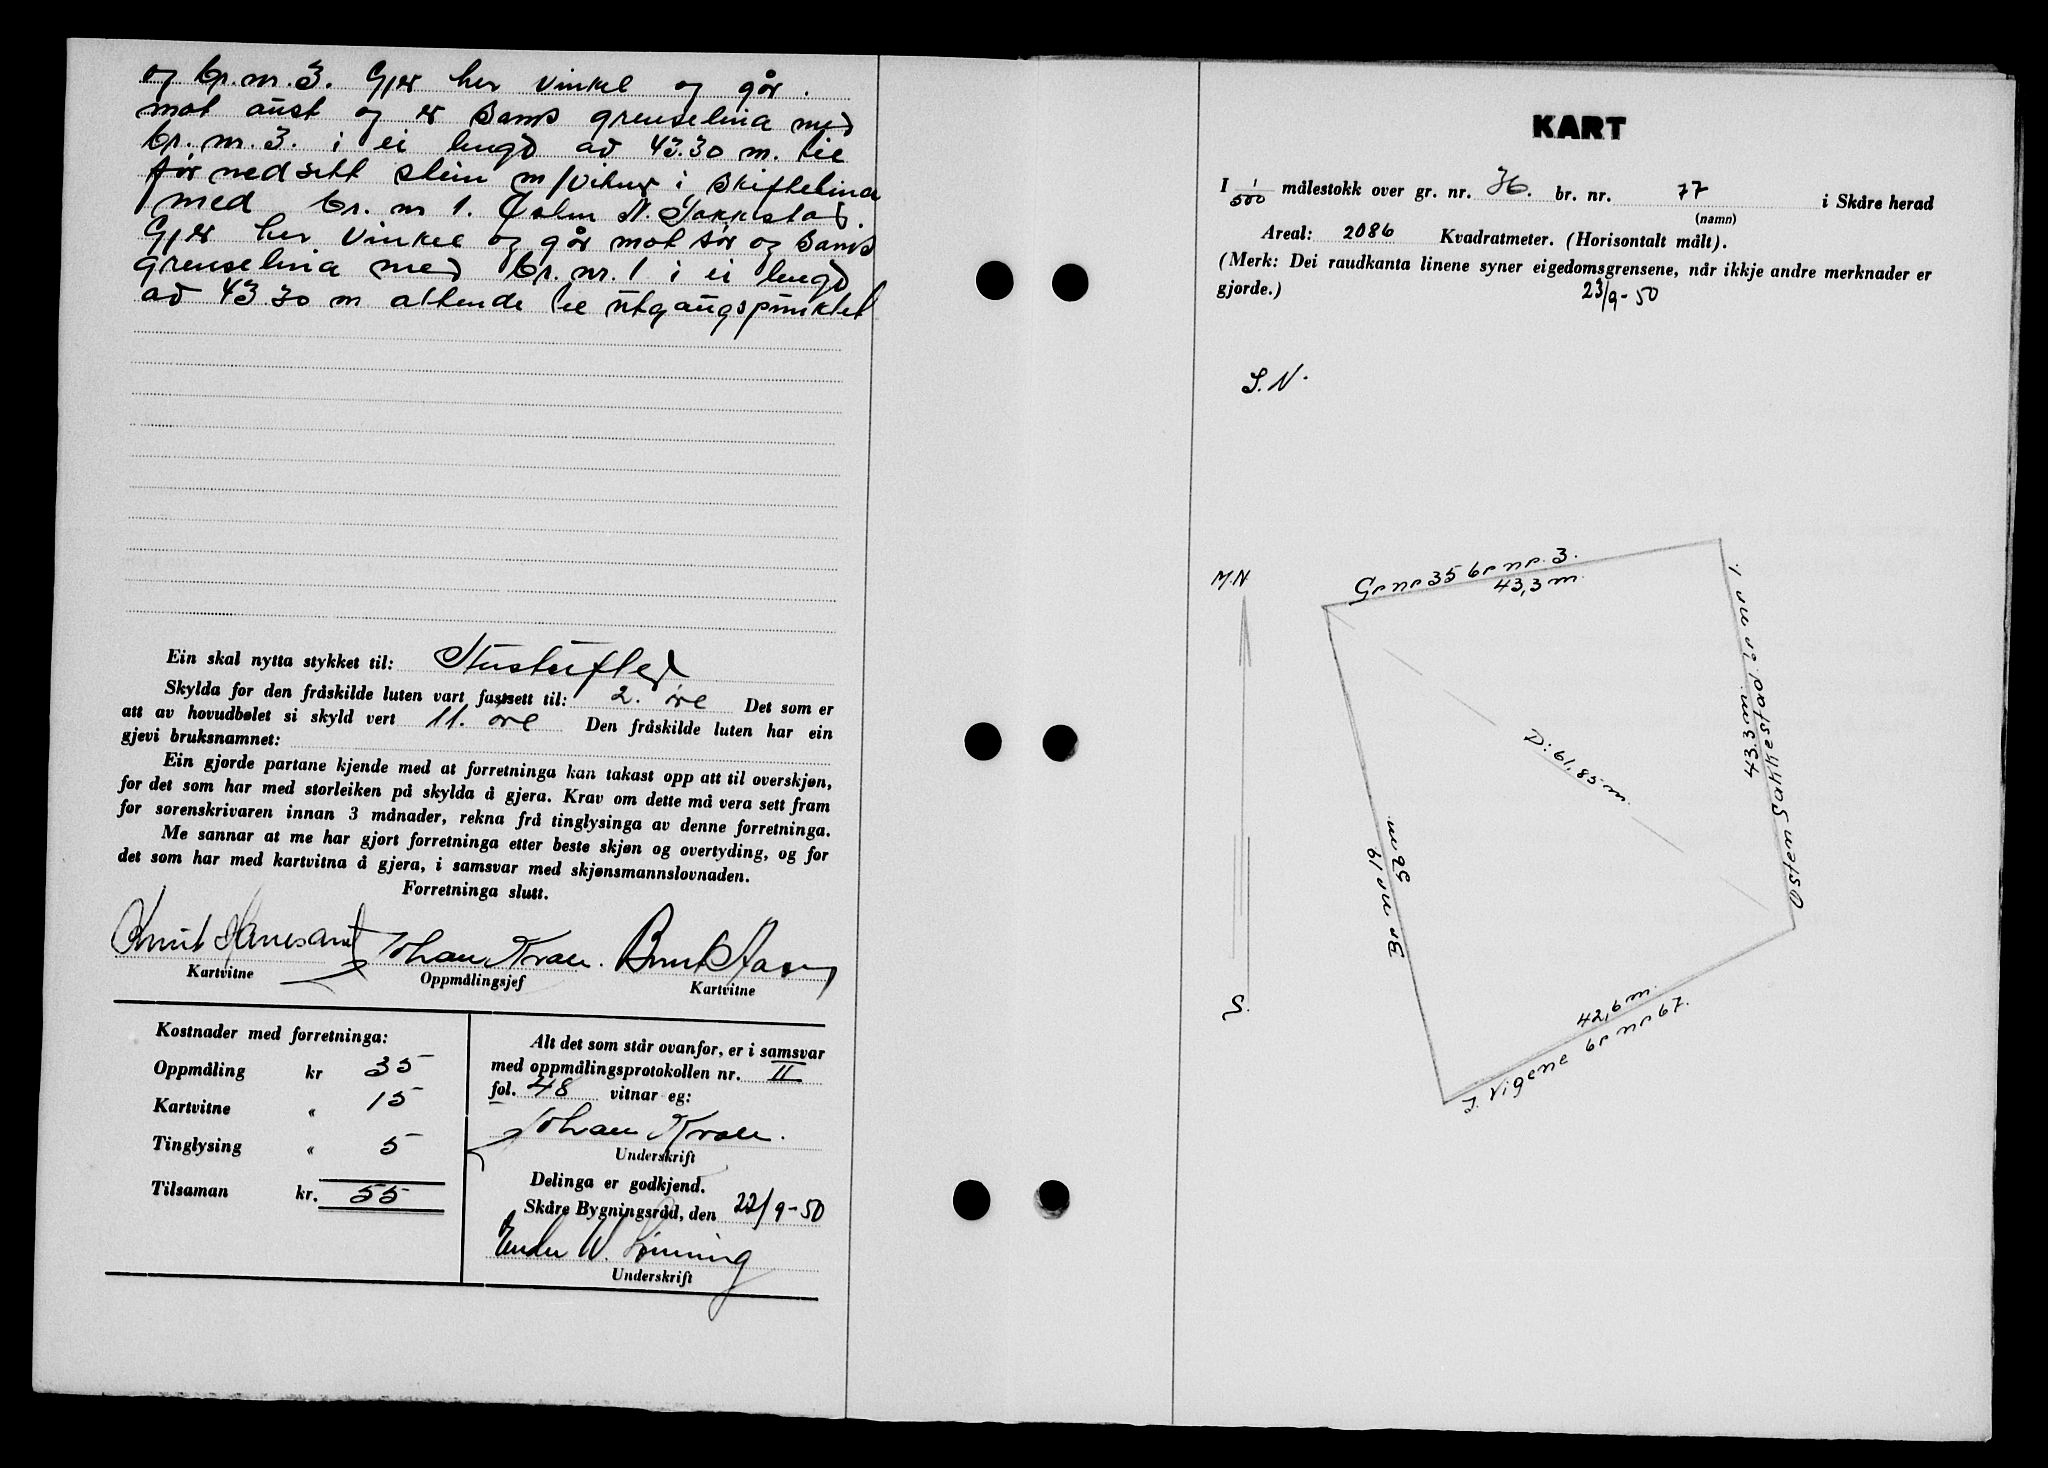 og br. nr. 3. Gjer her vinkel og går
mot aust og er sams grenselina med
br. nr. 3. i ei lengd av 43.30 m. til
før nedsett stein m/vitner i skiftelina
med br. nr 1. Østen N. Sakkstad.
Gjer her vinkel og går mot sør og sams
grenselina med br. nr. 1 i ei lengd
av 43 30 m attende til utgangspunktet
Ein skal nytta stykket til: Hustufted
Skylda for den fråskilde luten vart fastsett til: 2. øre Det som er
att av hovudbølet si skyld vert 11. øre Den fråskilde luten har ein
gjevi bruksnamnet:
Ein gjorde partane kjende med at forretninga kan takast opp att til overskjøn,
for det som har med storleiken på skylda å gjera. Krav om dette må vera sett fram
for sorenskrivaren innan 3 månader, rekna frå tinglysinga av denne forretninga.
Me sannar at me har gjort forretninga etter beste skjøn og overtyding, og for
det som har med kartvitna å gjera, i samsvar med skjønsmannslovnaden.
Forretninga slutt.
Knut Johan
Kartvitne Oppmålingsjef Kartvitne
Kostnader med forretninga:
Oppmåling kr 35
Kartvitne „ 15
Tinglysing „ 5
Tilsaman kr. 55
Alt det som står ovanfor, er i samsvar
med oppmålingsprotokollen nr. II
fol. 48 vitnar eg:
Johan
Underskrift
Delinga er godkjend.
Skåre Bygningsråd, den 22/9-50
W.
Underskrift
KART
I 1/500 målestokk over gr. nr. 36. br. nr. 77 i Skåre herad
(namn)
Areal: 2086 Kvadratmeter. (Horisontalt målt).
(Merk: Dei raudkanta linene syner eigedomsgrensene, når ikkje andre merknader er
gjorde.)
23/9-50
S.N.
M.N
S.
Gr nr 35 br nr. 3.
43,3 m.
Østen Sakkestad br nr 1.
43.3 m
D: 61,85 m.
Br nr 19
52 m
42,6 m.
J. Vigene br nr 67.